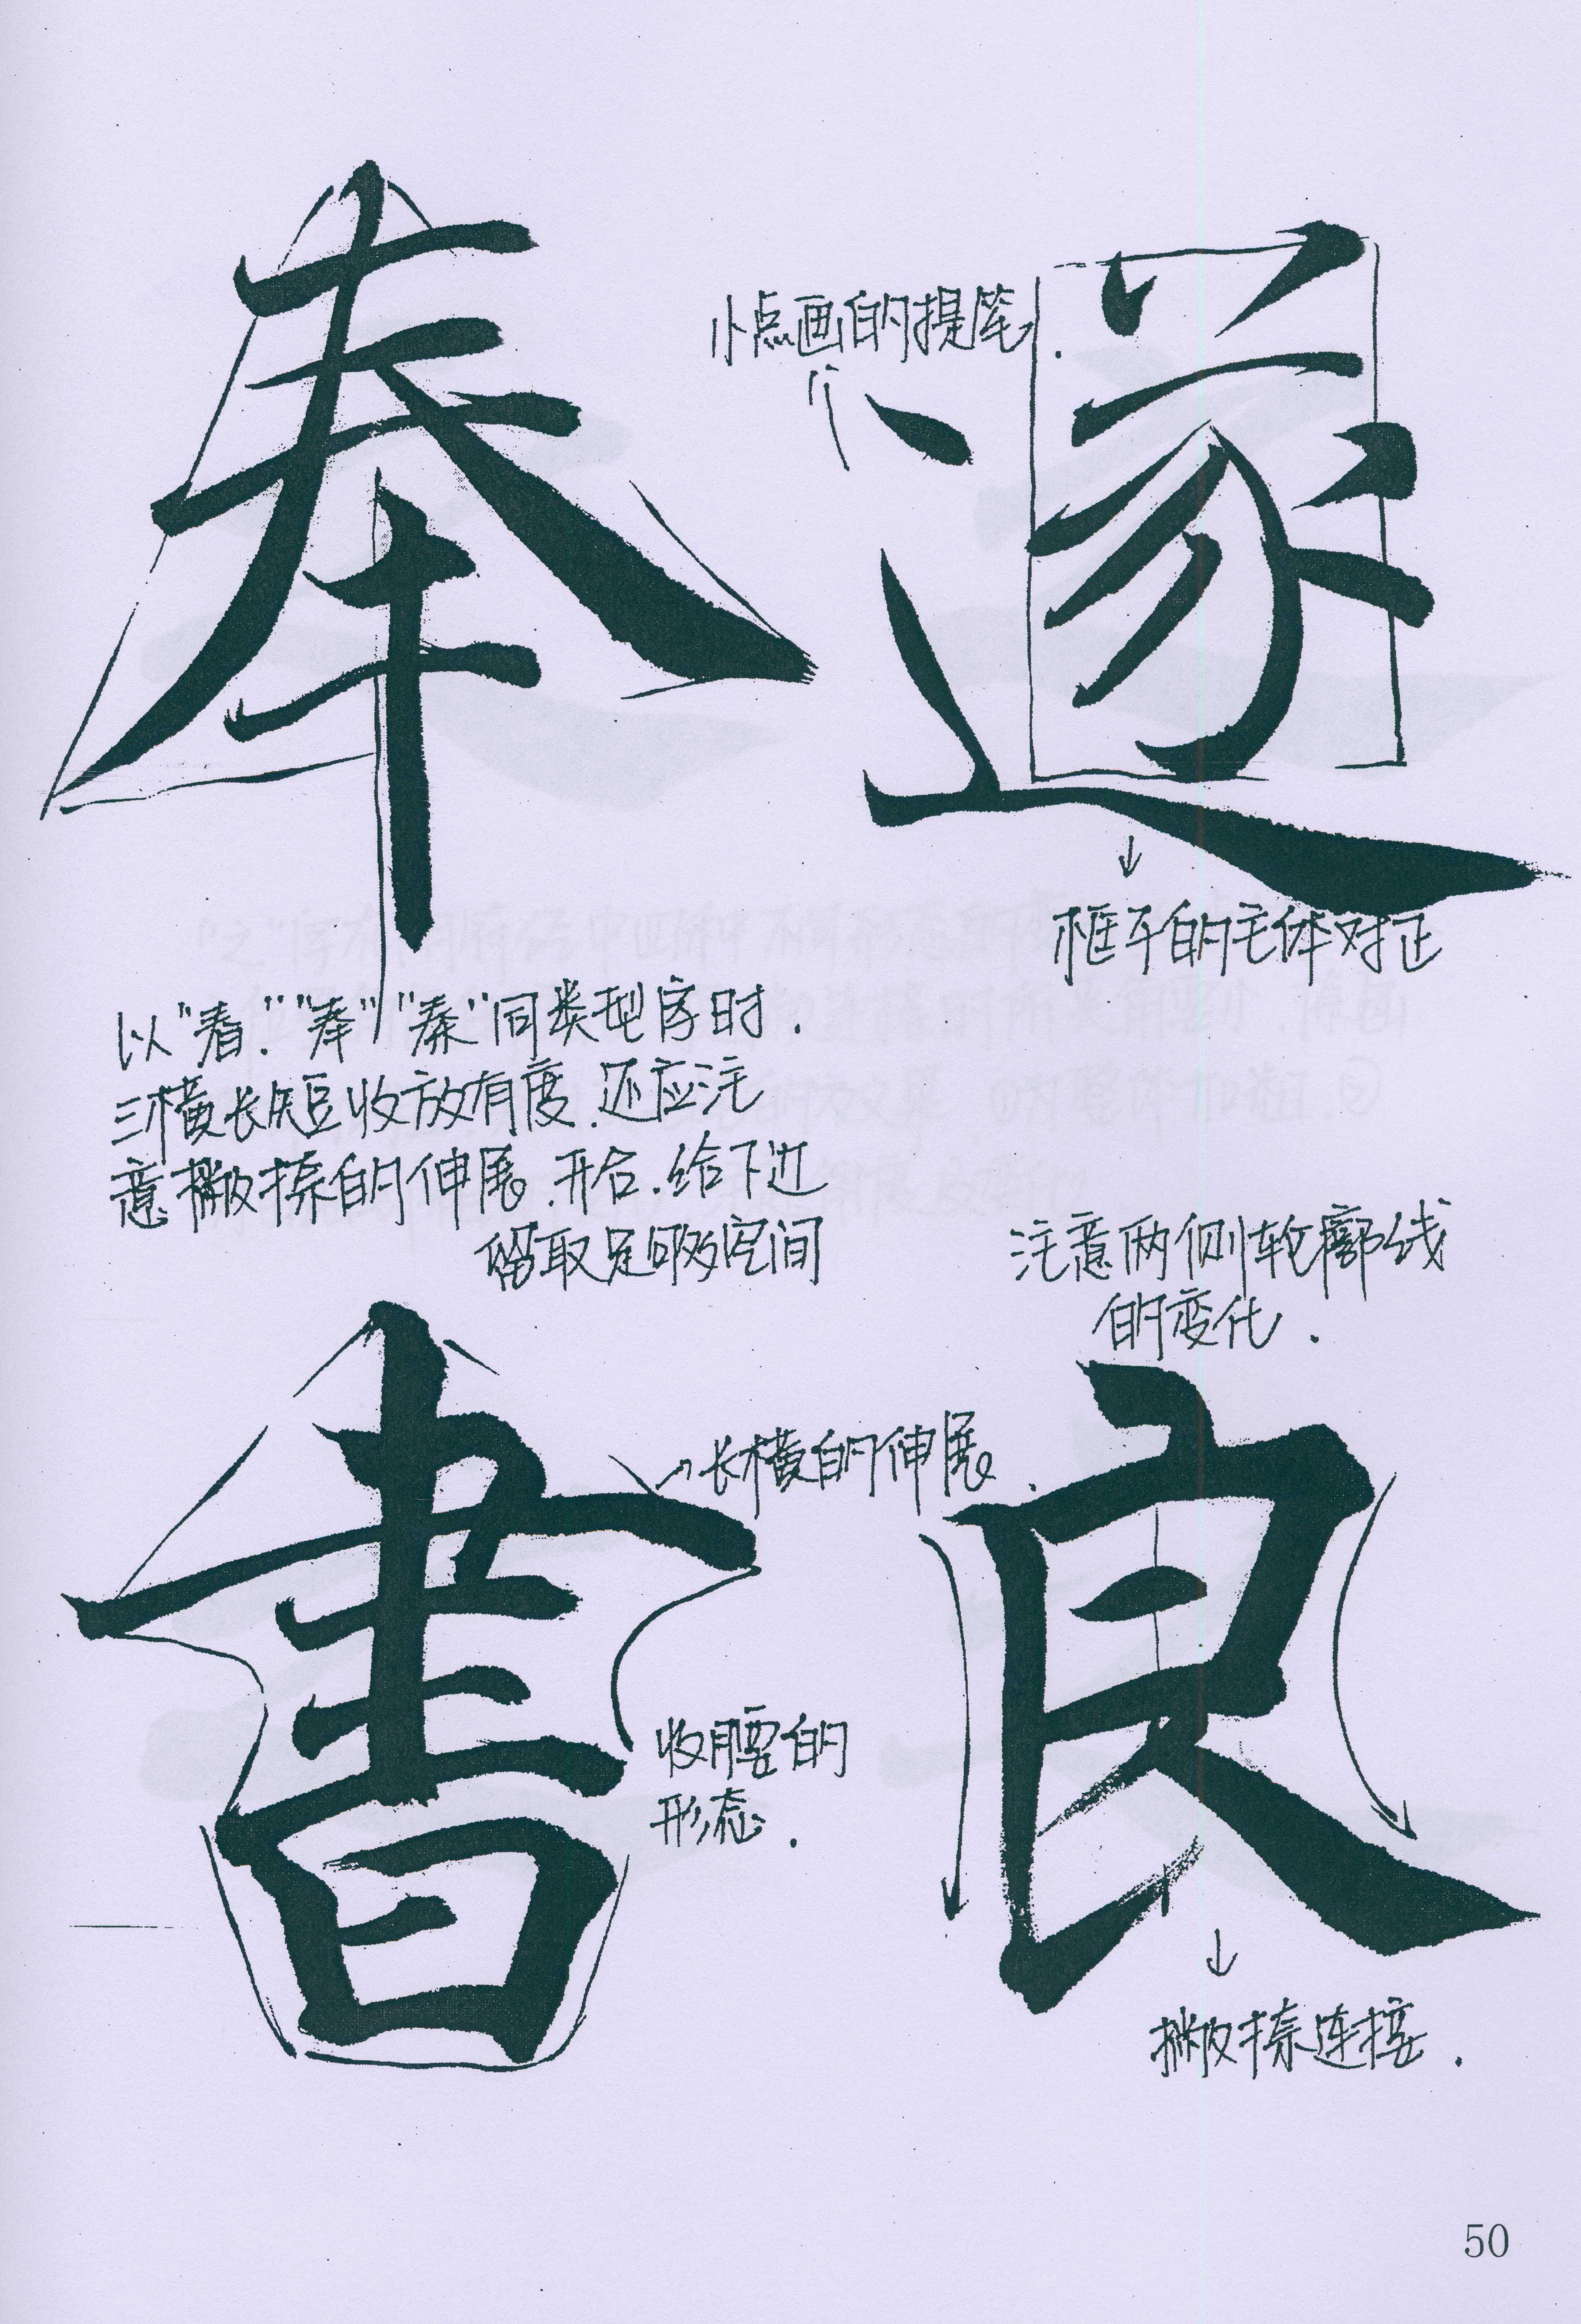 奉
遂
小点画的提笔.
框子的主体对正
以"春"."奉""秦"同类型字时.
三横长短收放有度.还应注
意撇捺的伸展.开合.给下边
留取足够空间
注意两侧轮廓线
的变化.
書
良
长横的伸展.
收腰的
形态.
撇捺连接.
50